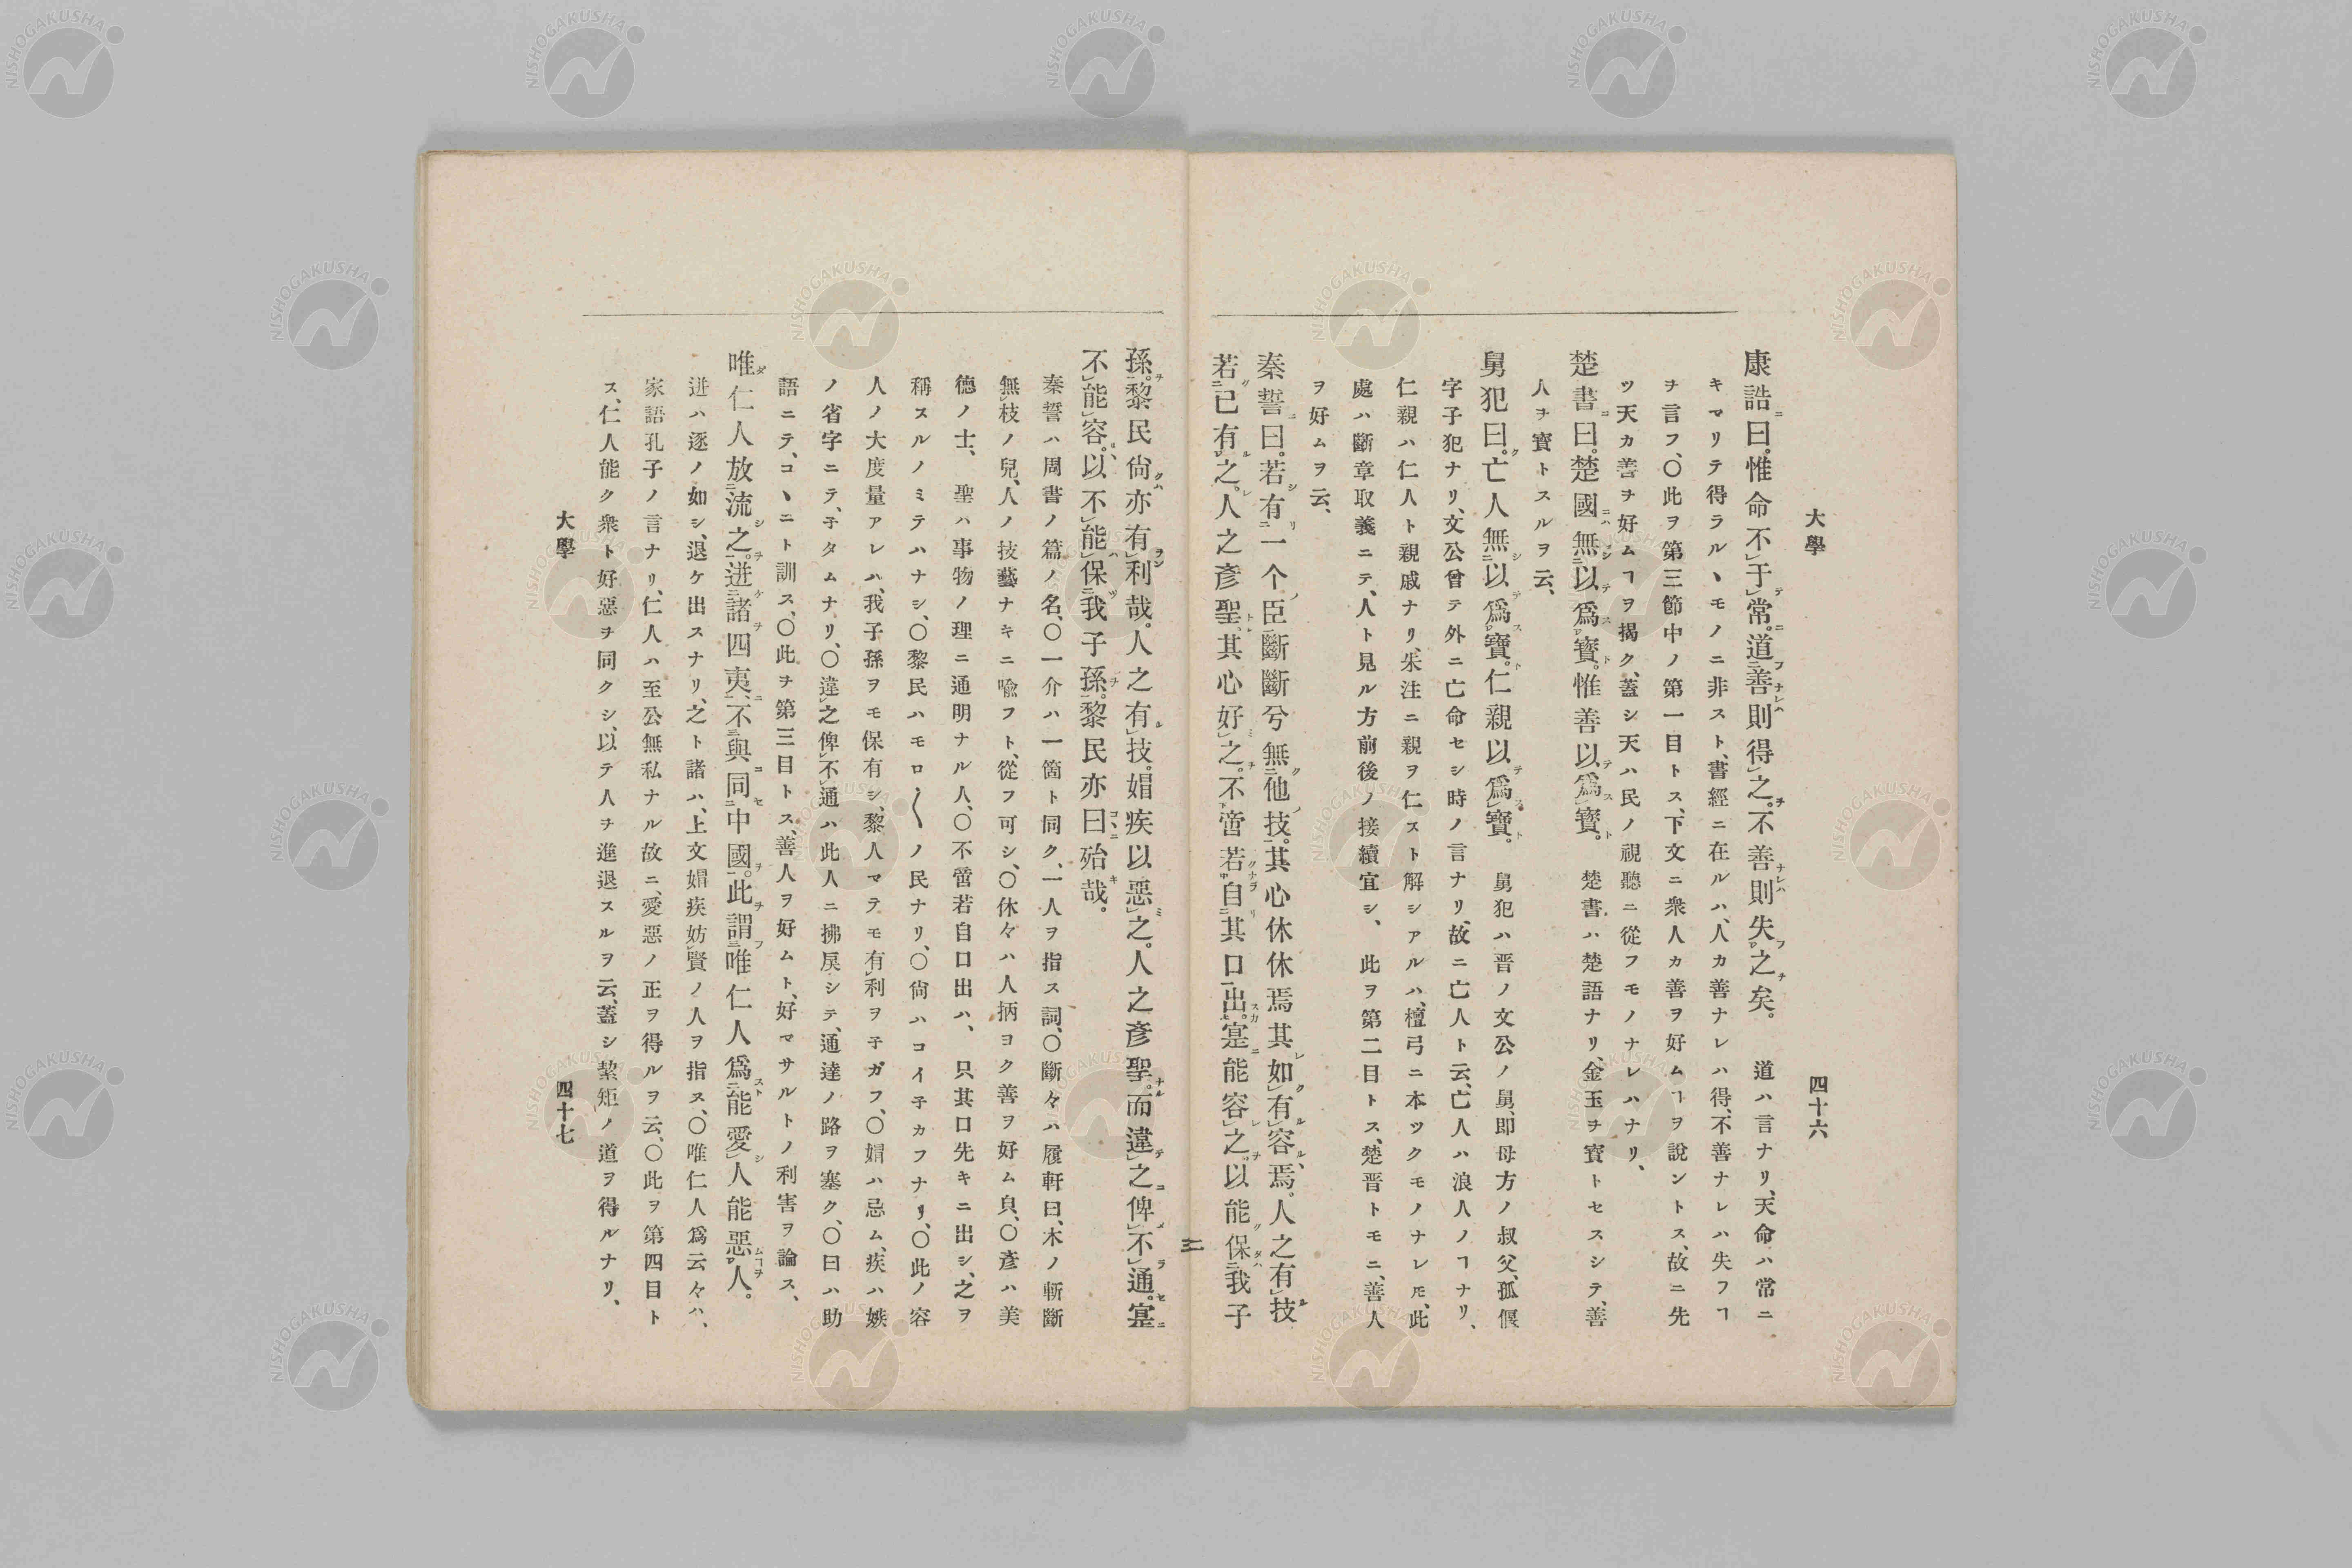 大學
四十六
康誥曰。惟命不于常。道善則得之。不善則失之矣。 道ハ言ナリ、天命ハ常ニ
キマリテ得ラルヽモノニ非スト、書經ニ在ルハ、人カ善ナレハ得、不善ナレハ失フヿ
ヲ言フ、〇此ヲ第三節中ノ第一目トス、下文ニ衆人カ善ヲ好ムヿヲ說ントス、故ニ先
ツ天カ善ヲ好ムヿヲ揭ク、蓋シ天ハ民ノ視聽ニ從フモノナレハナリ、
楚書曰。楚國無以爲寶。惟善以爲寶。 楚書ハ楚語ナリ、金玉ヲ寶トセスシテ、善
人ヲ寶トスルヲ云、
舅犯曰。亡人無以爲寶。仁親以爲寶。 舅犯ハ晋ノ文公ノ舅、卽母方ノ叔父、孤偃
字子犯ナリ、文公曾テ外ニ亡命セシ時ノ言ナリ、故ニ亡人ト云、亡人ハ浪人ノヿナリ、
仁親ハ仁人ト親戚ナリ、朱注ニ親ヲ仁スト解シアルハ、檀弓ニ本ツクモノナレ𪜈、此
處ハ斷章取義ニテ、人ト見ル方前後ノ接續宜シ、 此ヲ第二目トス、楚晋トモニ、善人
ヲ好ムヲ云、
秦誓曰。若有一个臣斷斷兮無他技。其心休休焉其如有容焉。人之有技
若己有之。人之彥聖其心好之。不啻若自其口出。寔能容之以能保我子
孫。黎民尙亦有利哉。人之有技。媢疾以惡之。人之彥聖。而違之俾不通。寔
不能容。以不能保我子孫。黎民亦曰殆哉。
秦誓ハ周書ノ篇ノ名、〇一介ハ一箇ト同ク、一人ヲ指ス詞、〇斷々ハ履軒曰、木ノ斬斷
無枝ノ皃、人ノ技藝ナキニ喩フト、從フ可シ、〇休々ハ人柄ヨク善ヲ好ム皃、〇彥ハ美
德ノ士、 聖ハ事物ノ理ニ通明ナル人、〇不啻若自口出ハ、 只其口先キニ出シ、之ヲ
稱スルノミテハナシ、〇黎民ハモロ〱ノ民ナリ、〇尙ハコイ子カフナリ、〇此ノ容
人ノ大度量アレハ、我子孫ヲモ保有シ、黎人マテモ有利ヲ子ガフ、〇媢ハ忌ム、疾ハ嫉
ノ省字ニテ、子タムナリ、〇違之俾不通ハ此人ニ拂戾シテ、通達ノ路ヲ塞ク、〇曰ハ助
語ニテ、コヽニト訓ス、〇此ヲ第三目トス、善人ヲ好ムト、好マサルトノ利害ヲ論ス、
唯仁人放流之。迸諸四夷、不與同中國。此謂唯仁人爲能愛人能惡人。
迸ハ逐ノ如シ、退ケ出スナリ、之ト諸ハ、上文媢疾妨賢ノ人ヲ指ス、〇唯仁人爲云々ハ、
家語孔子ノ言ナリ、仁人ハ至公無私ナル故ニ、愛惡ノ正ヲ得ルヲ云、〇此ヲ第四目ト
ス、仁人能ク衆ト好惡ヲ同クシ、以テ人ヲ進退スルヲ云、蓋シ絜矩ノ道ヲ得ルナリ、
大學
四十七